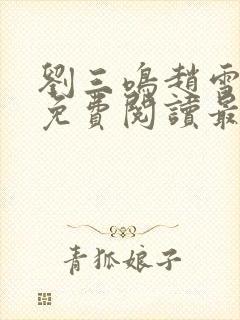 劉三鳴趙雪
免費閱讀最
青狐娘子